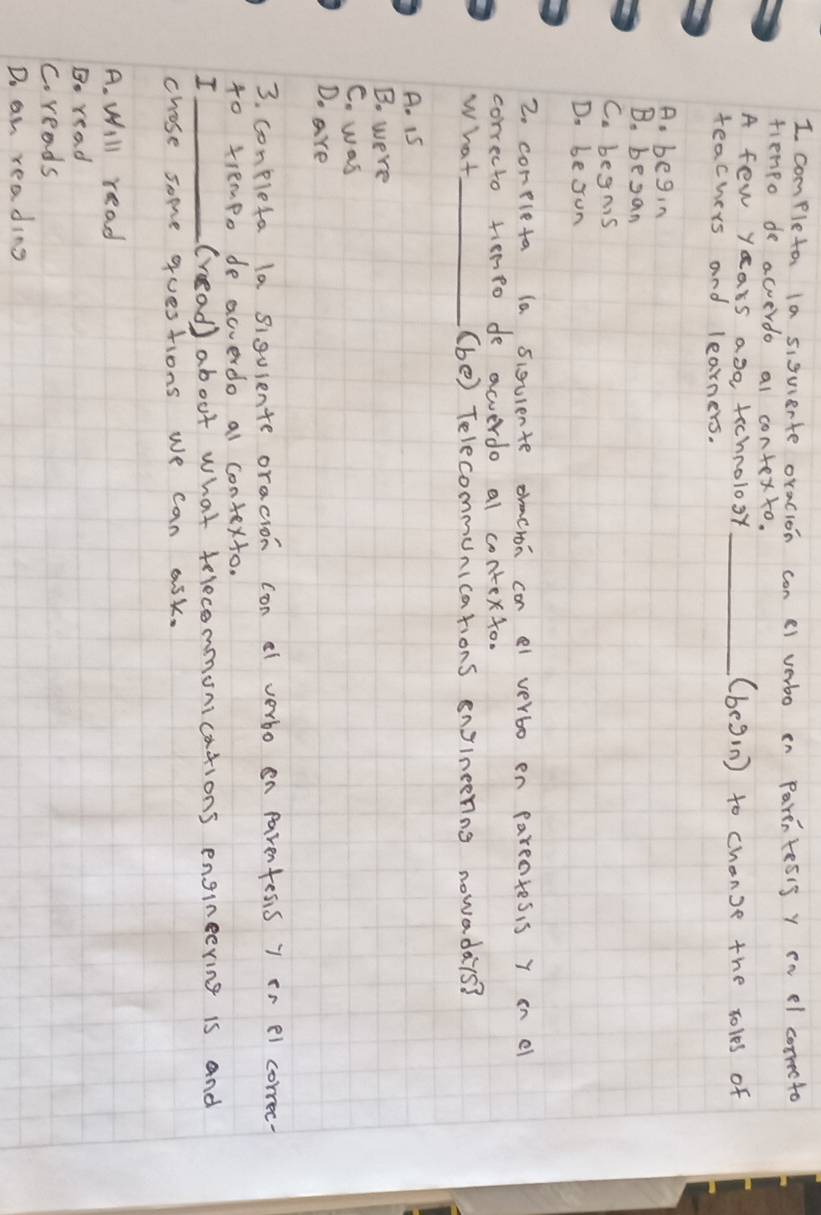 1. completa la siguiente oración con el verbo en paréntesis y en el correcto
tiempo de acuerdo al contexto.
A few yaars ago, technology ______ (begin) to change the roles of
teachers and learners.
A. begin
B. began
C. begins
D. begun
2. completa la siguiente oración con el verbo en parentesis y en el
correcto tiempo de acuerdo al contexto.
What ______ (be) Telecommunications engineering nowadays?
A. is
B. were
C. was
D. are
3. completa la siguiente oración con el verbo en parentesis y en el correc-
to tiempo de acuerdo al contexto.
I ______ (read) about what telecommunications engineering is and
chose some questions we can ask.
A. Will read
B. read
C. reads
D. an reading